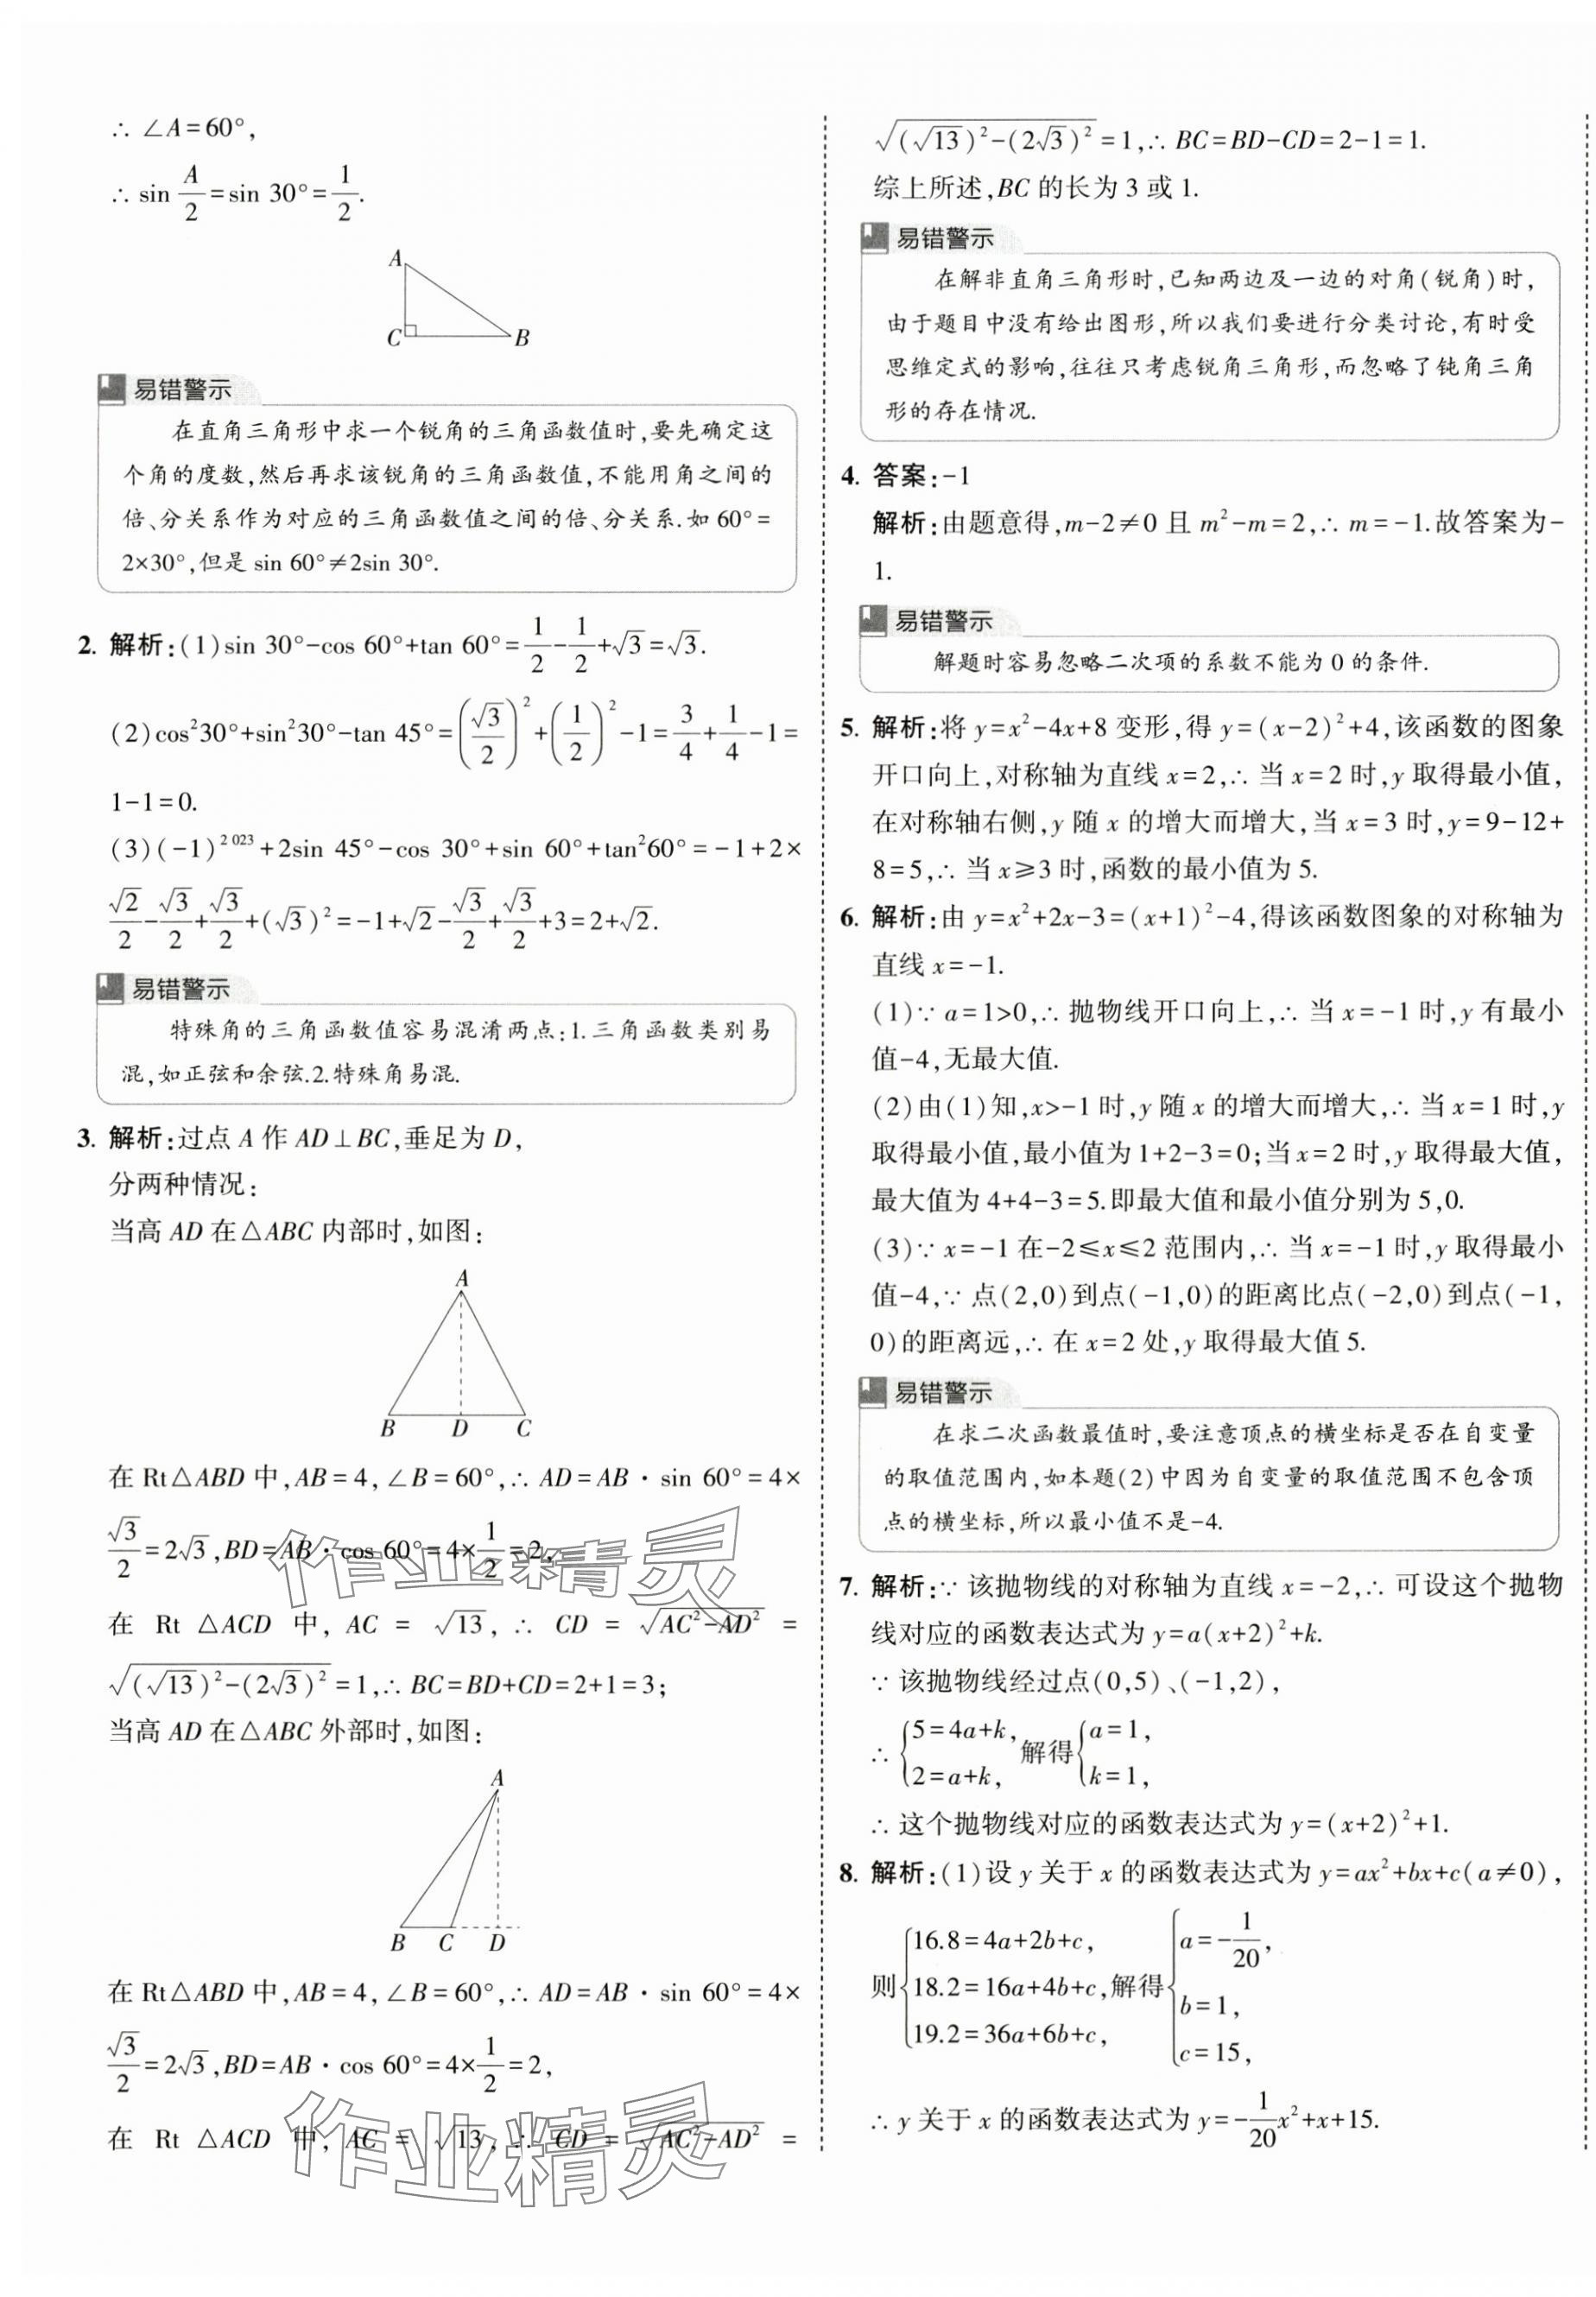 ∴ ∠A=60°,
∴ sin A/2=sin 30°=1/2.
A
C
B
易错警示
在直角三角形中求一个锐角的三角函数值时,要先确定这
个角的度数,然后再求该锐角的三角函数值,不能用角之间的
倍、分关系作为对应的三角函数值之间的倍、分关系.如 60°=
2×30°,但是 sin 60°≠2sin 30°.
2. 解析:(1)sin 30°-cos 60°+tan 60°=1/2-1/2+√3=√3.
(2)cos²30°+sin²30°-tan 45°=(√3/2)²+(1/2)²-1=3/4+1/4-1=
1-1=0.
(3)(-1)^2 023+2sin 45°-cos 30°+sin 60°+tan²60°=-1+2×
√2/2-√3/2+√3/2+(√3)²=-1+√2-√3/2+√3/2+3=2+√2.
易错警示
特殊角的三角函数值容易混淆两点:1.三角函数类别易
混,如正弦和余弦.2.特殊角易混.
3. 解析:过点 A 作 AD⊥BC,垂足为 D,
分两种情况:
当高 AD 在△ABC 内部时,如图:
A
B D C
在 Rt△ABD 中,AB=4,∠B=60°,∴ AD=AB·sin 60°=4×
√3/2=2√3,BD=AB·cos 60°=4×1/2=2,
在 Rt △ACD 中, AC = √13, ∴ CD = √(AC²-AD²) =
√((√13)²-(2√3)²)=1,∴ BC=BD+CD=2+1=3;
当高 AD 在△ABC 外部时,如图:
A
B C D
在 Rt△ABD 中,AB=4,∠B=60°,∴ AD=AB·sin 60°=4×
√3/2=2√3,BD=AB·cos 60°=4×1/2=2,
在 Rt △ACD 中, AC = √13, ∴ CD = √(AC²-AD²) =
作业精灵
作业精灵
√((√13)²-(2√3)²)=1,∴ BC=BD-CD=2-1=1.
综上所述,BC 的长为 3 或 1.
易错警示
在解非直角三角形时,已知两边及一边的对角(锐角)时,
由于题目中没有给出图形,所以我们要进行分类讨论,有时受
思维定式的影响,往往只考虑锐角三角形,而忽略了钝角三角
形的存在情况.
4. 答案:-1
解析:由题意得,m-2≠0 且 m²-m=2,∴ m=-1.故答案为-
1.
易错警示
解题时容易忽略二次项的系数不能为 0 的条件.
5. 解析:将 y=x²-4x+8 变形,得 y=(x-2)²+4,该函数的图象
开口向上,对称轴为直线 x=2,∴ 当 x=2 时,y 取得最小值,
在对称轴右侧,y 随 x 的增大而增大,当 x=3 时,y=9-12+
8=5,∴ 当 x≥3 时,函数的最小值为 5.
6. 解析:由 y=x²+2x-3=(x+1)²-4,得该函数图象的对称轴为
直线 x=-1.
(1)∵ a=1>0,∴ 抛物线开口向上,∴ 当 x=-1 时,y 有最小
值-4,无最大值.
(2)由(1)知,x>-1 时,y 随 x 的增大而增大,∴ 当 x=1 时,y
取得最小值,最小值为 1+2-3=0;当 x=2 时,y 取得最大值,
最大值为 4+4-3=5.即最大值和最小值分别为 5,0.
(3)∵ x=-1 在-2≤x≤2 范围内,∴ 当 x=-1 时,y 取得最小
值-4,∵ 点(2,0)到点(-1,0)的距离比点(-2,0)到点(-1,
0)的距离远,∴ 在 x=2 处,y 取得最大值 5.
易错警示
在求二次函数最值时,要注意顶点的横坐标是否在自变量
的取值范围内,如本题(2)中因为自变量的取值范围不包含顶
点的横坐标,所以最小值不是-4.
7. 解析:∵ 该抛物线的对称轴为直线 x=-2,∴ 可设这个抛物
线对应的函数表达式为 y=a(x+2)²+k.
∵ 该抛物线经过点(0,5)、(-1,2),
∴ {5=4a+k, 2=a+k, 解得{a=1, k=1,
∴ 这个抛物线对应的函数表达式为 y=(x+2)²+1.
8. 解析:(1)设 y 关于 x 的函数表达式为 y=ax²+bx+c(a≠0),
则{16.8=4a+2b+c, 18.2=16a+4b+c, 19.2=36a+6b+c, 解得{a=-1/20, b=1, c=15,
∴ y 关于 x 的函数表达式为 y=-1/20x²+x+15.